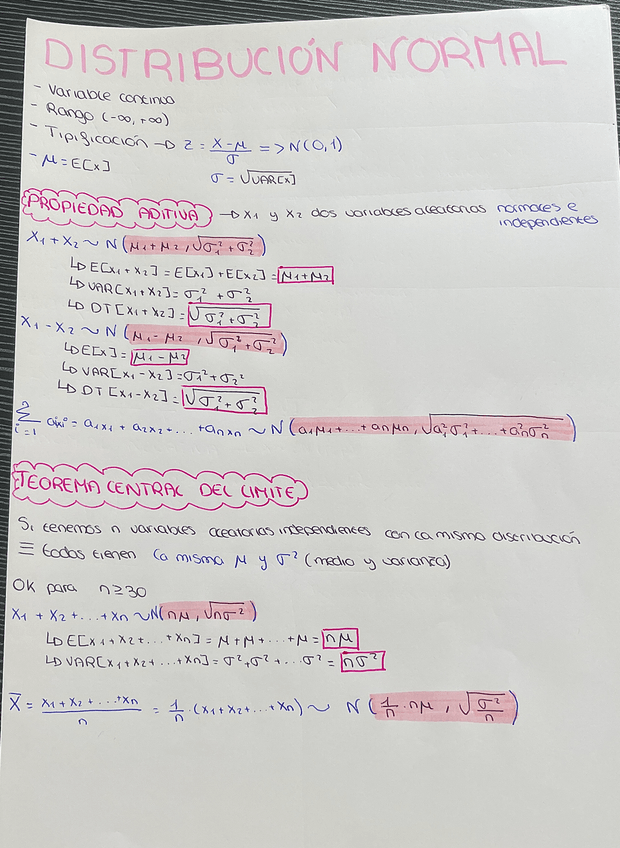 DISTRIBUCIÓN NORMAL
- Variable continua
- Rango (-∞, +∞)
- Tipificación → Z = (X-μ)/σ => N(0,1)
- μ = E[x]
σ = √VAR[x]
PROPIEDAD ADITIVA → X1 y X2 dos variables aleatorias normales e
independientes
X1 + X2 ~ N(μ1+μ2, √(σ1² + σ2²))
↳ E[X1+X2] = E[X1] + E[X2] = μ1+μ2
↳ VAR[X1+X2] = σ1² + σ2²
↳ DT[X1+X2] = √(σ1² + σ2²)
X1 - X2 ~ N(μ1-μ2, √(σ1² + σ2²))
↳ E[X] = μ1-μ2
↳ VAR[X1-X2] = σ1² + σ2²
↳ DT[X1-X2] = √(σ1² + σ2²)
Σ i=1 aixi = a1x1 + a2x2 + ... + anxn ~ N(a1μ1 + ... + anμn, √(a1²σ1² + ... + an²σn²))
TEOREMA CENTRAL DEL LIMITE
Si tenemos n variables aleatorias independientes con la misma distribución
≡ todas tienen la misma μ y σ² (media y varianza)
OK para n≥30
X1 + X2 + ... + Xn ~ N(nμ, √nσ²)
↳ E[X1+X2+...+Xn] = μ+μ+...+μ = nμ
↳ VAR[X1+X2+...+Xn] = σ²+σ²+...σ² = nσ²
X̄ = (X1+X2+...+Xn)/n = 1/n · (X1+X2+...+Xn) ~ N(1/n · nμ, √(σ²/n))